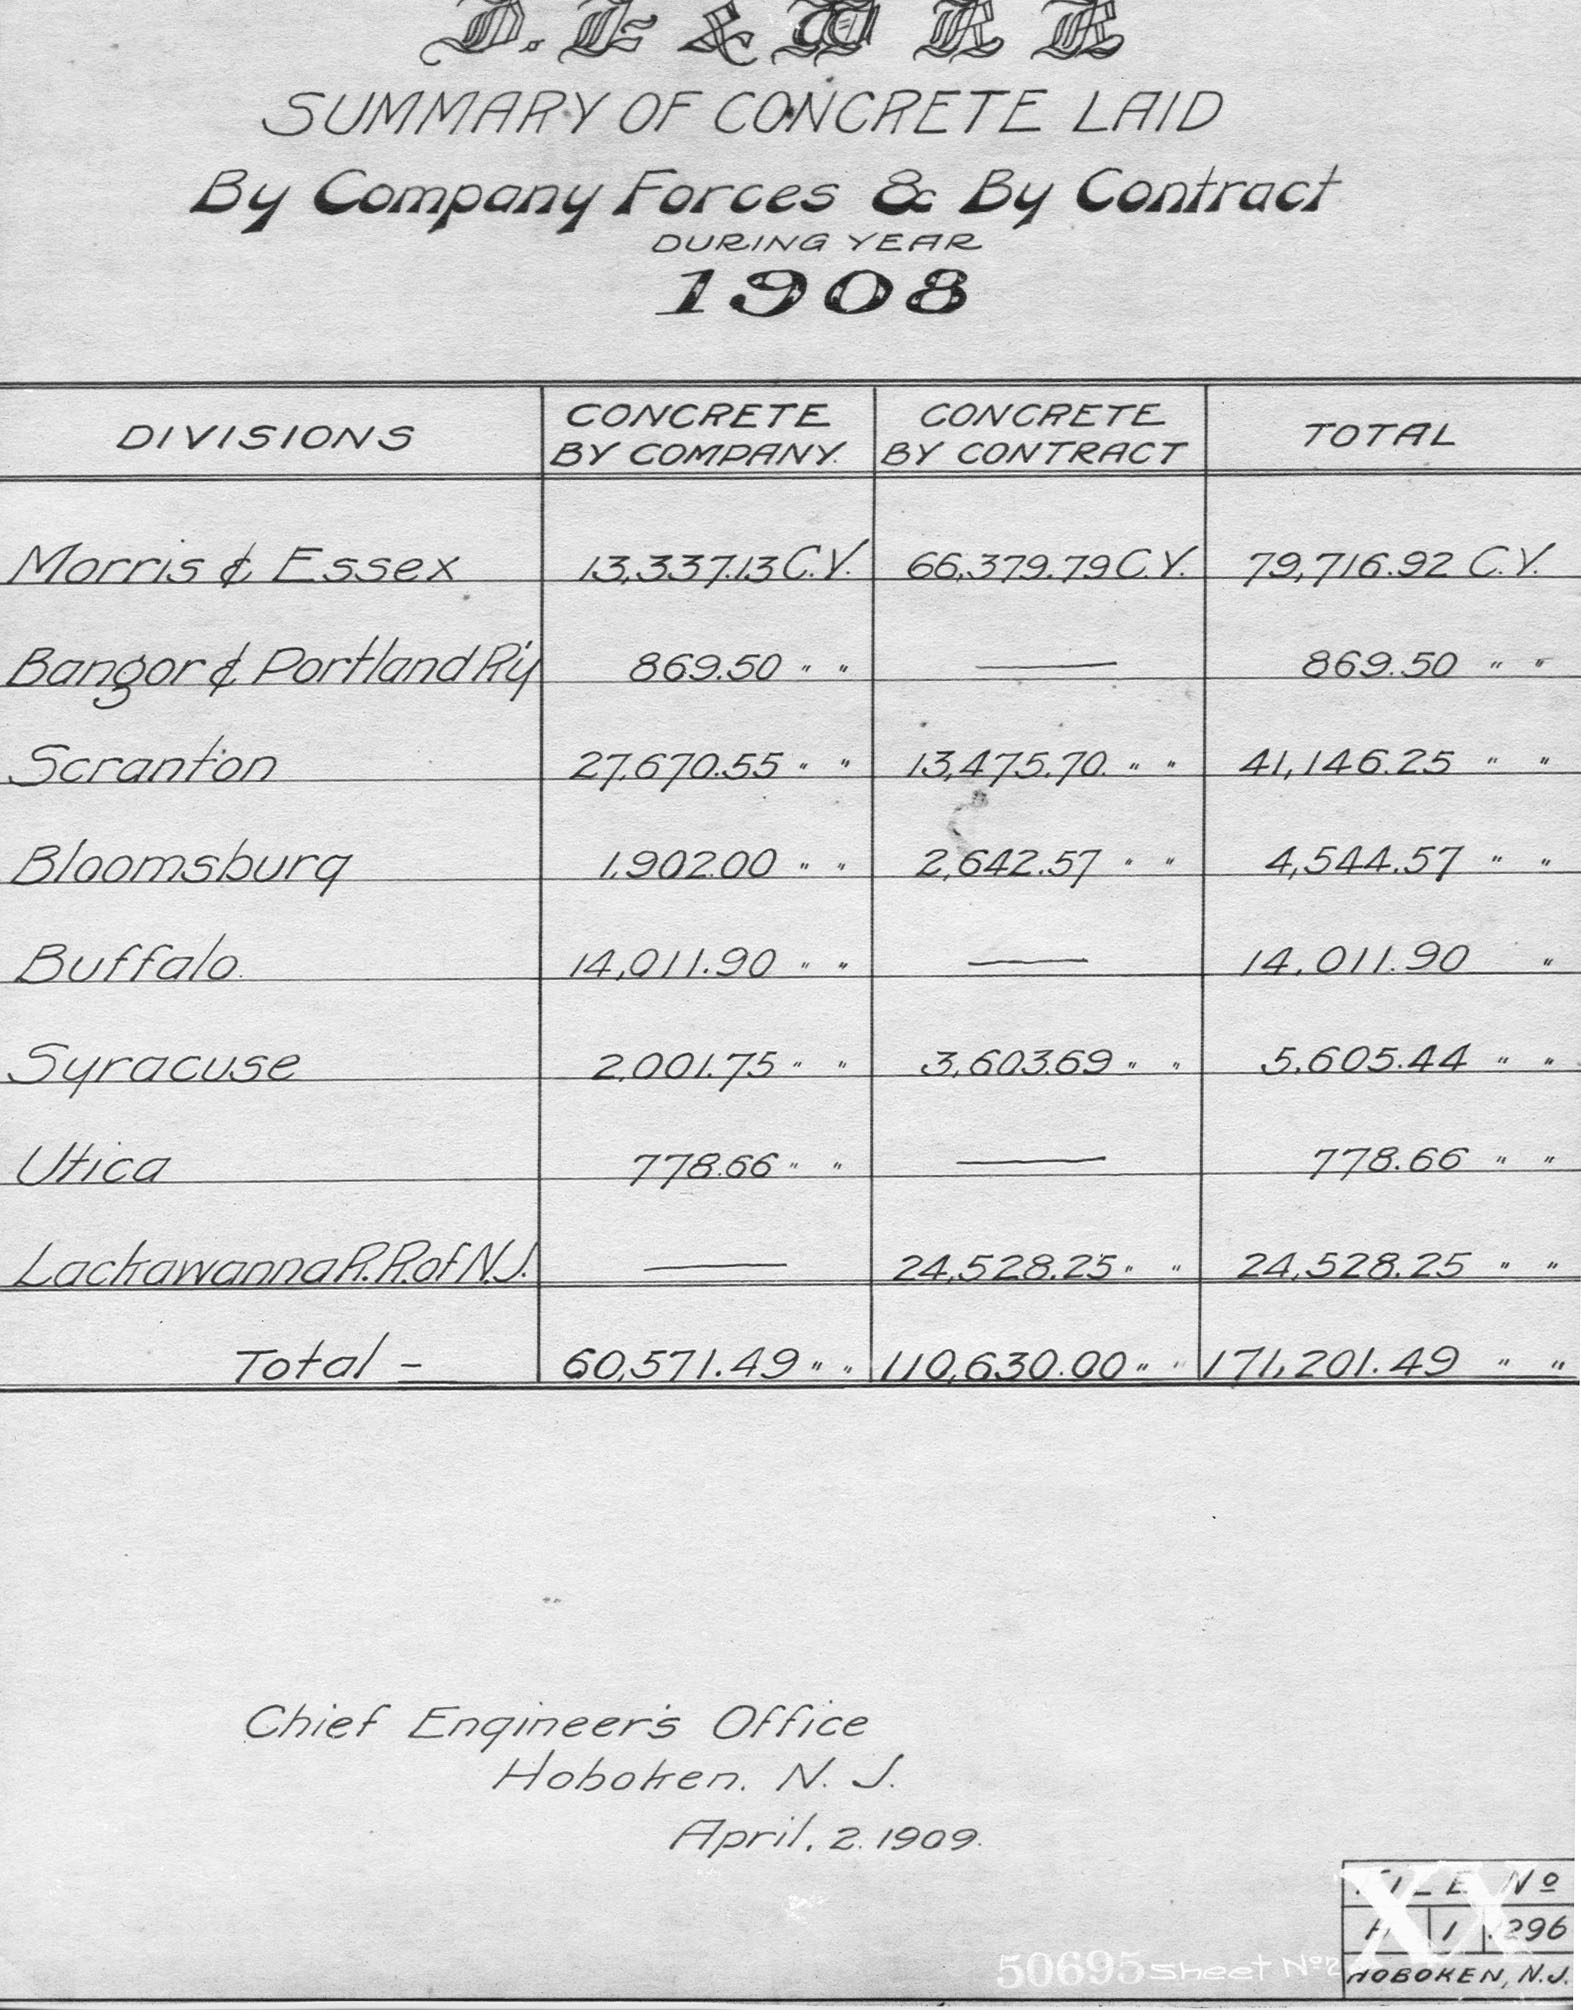 D. L & W R R
SUMMARY OF CONCRETE LAID
By Company Forces & By Contract
DURING YEAR
1908
DIVISIONS CONCRETE BY COMPANY. CONCRETE BY CONTRACT TOTAL
Morris & Essex 13,337.13 C.Y. 66,379.79 C.Y. 79,716.92 C.Y.
Bangor & Portland R'y 869.50 " " — 869.50 " "
Scranton 27,670.55 " " 13,475.70 " " 41,146.25 " "
Bloomsburg 1,902.00 " " 2,642.57 " " 4,544.57 " "
Buffalo 14,011.90 " " — 14,011.90 "
Syracuse 2,001.75 " " 3,603.69 " " 5,605.44 " "
Utica 778.66 " " — 778.66 " "
Lackawanna R.R. of N.J. — 24,528.25 " " 24,528.25 " "
Total - 60,571.49 " " 110,630.00 " " 171,201.49 " "
Chief Engineer's Office
Hoboken. N. J.
April, 2. 1909.
FILE No
1 296
HOBOKEN, N.J.
50695 Sheet No 2
XX